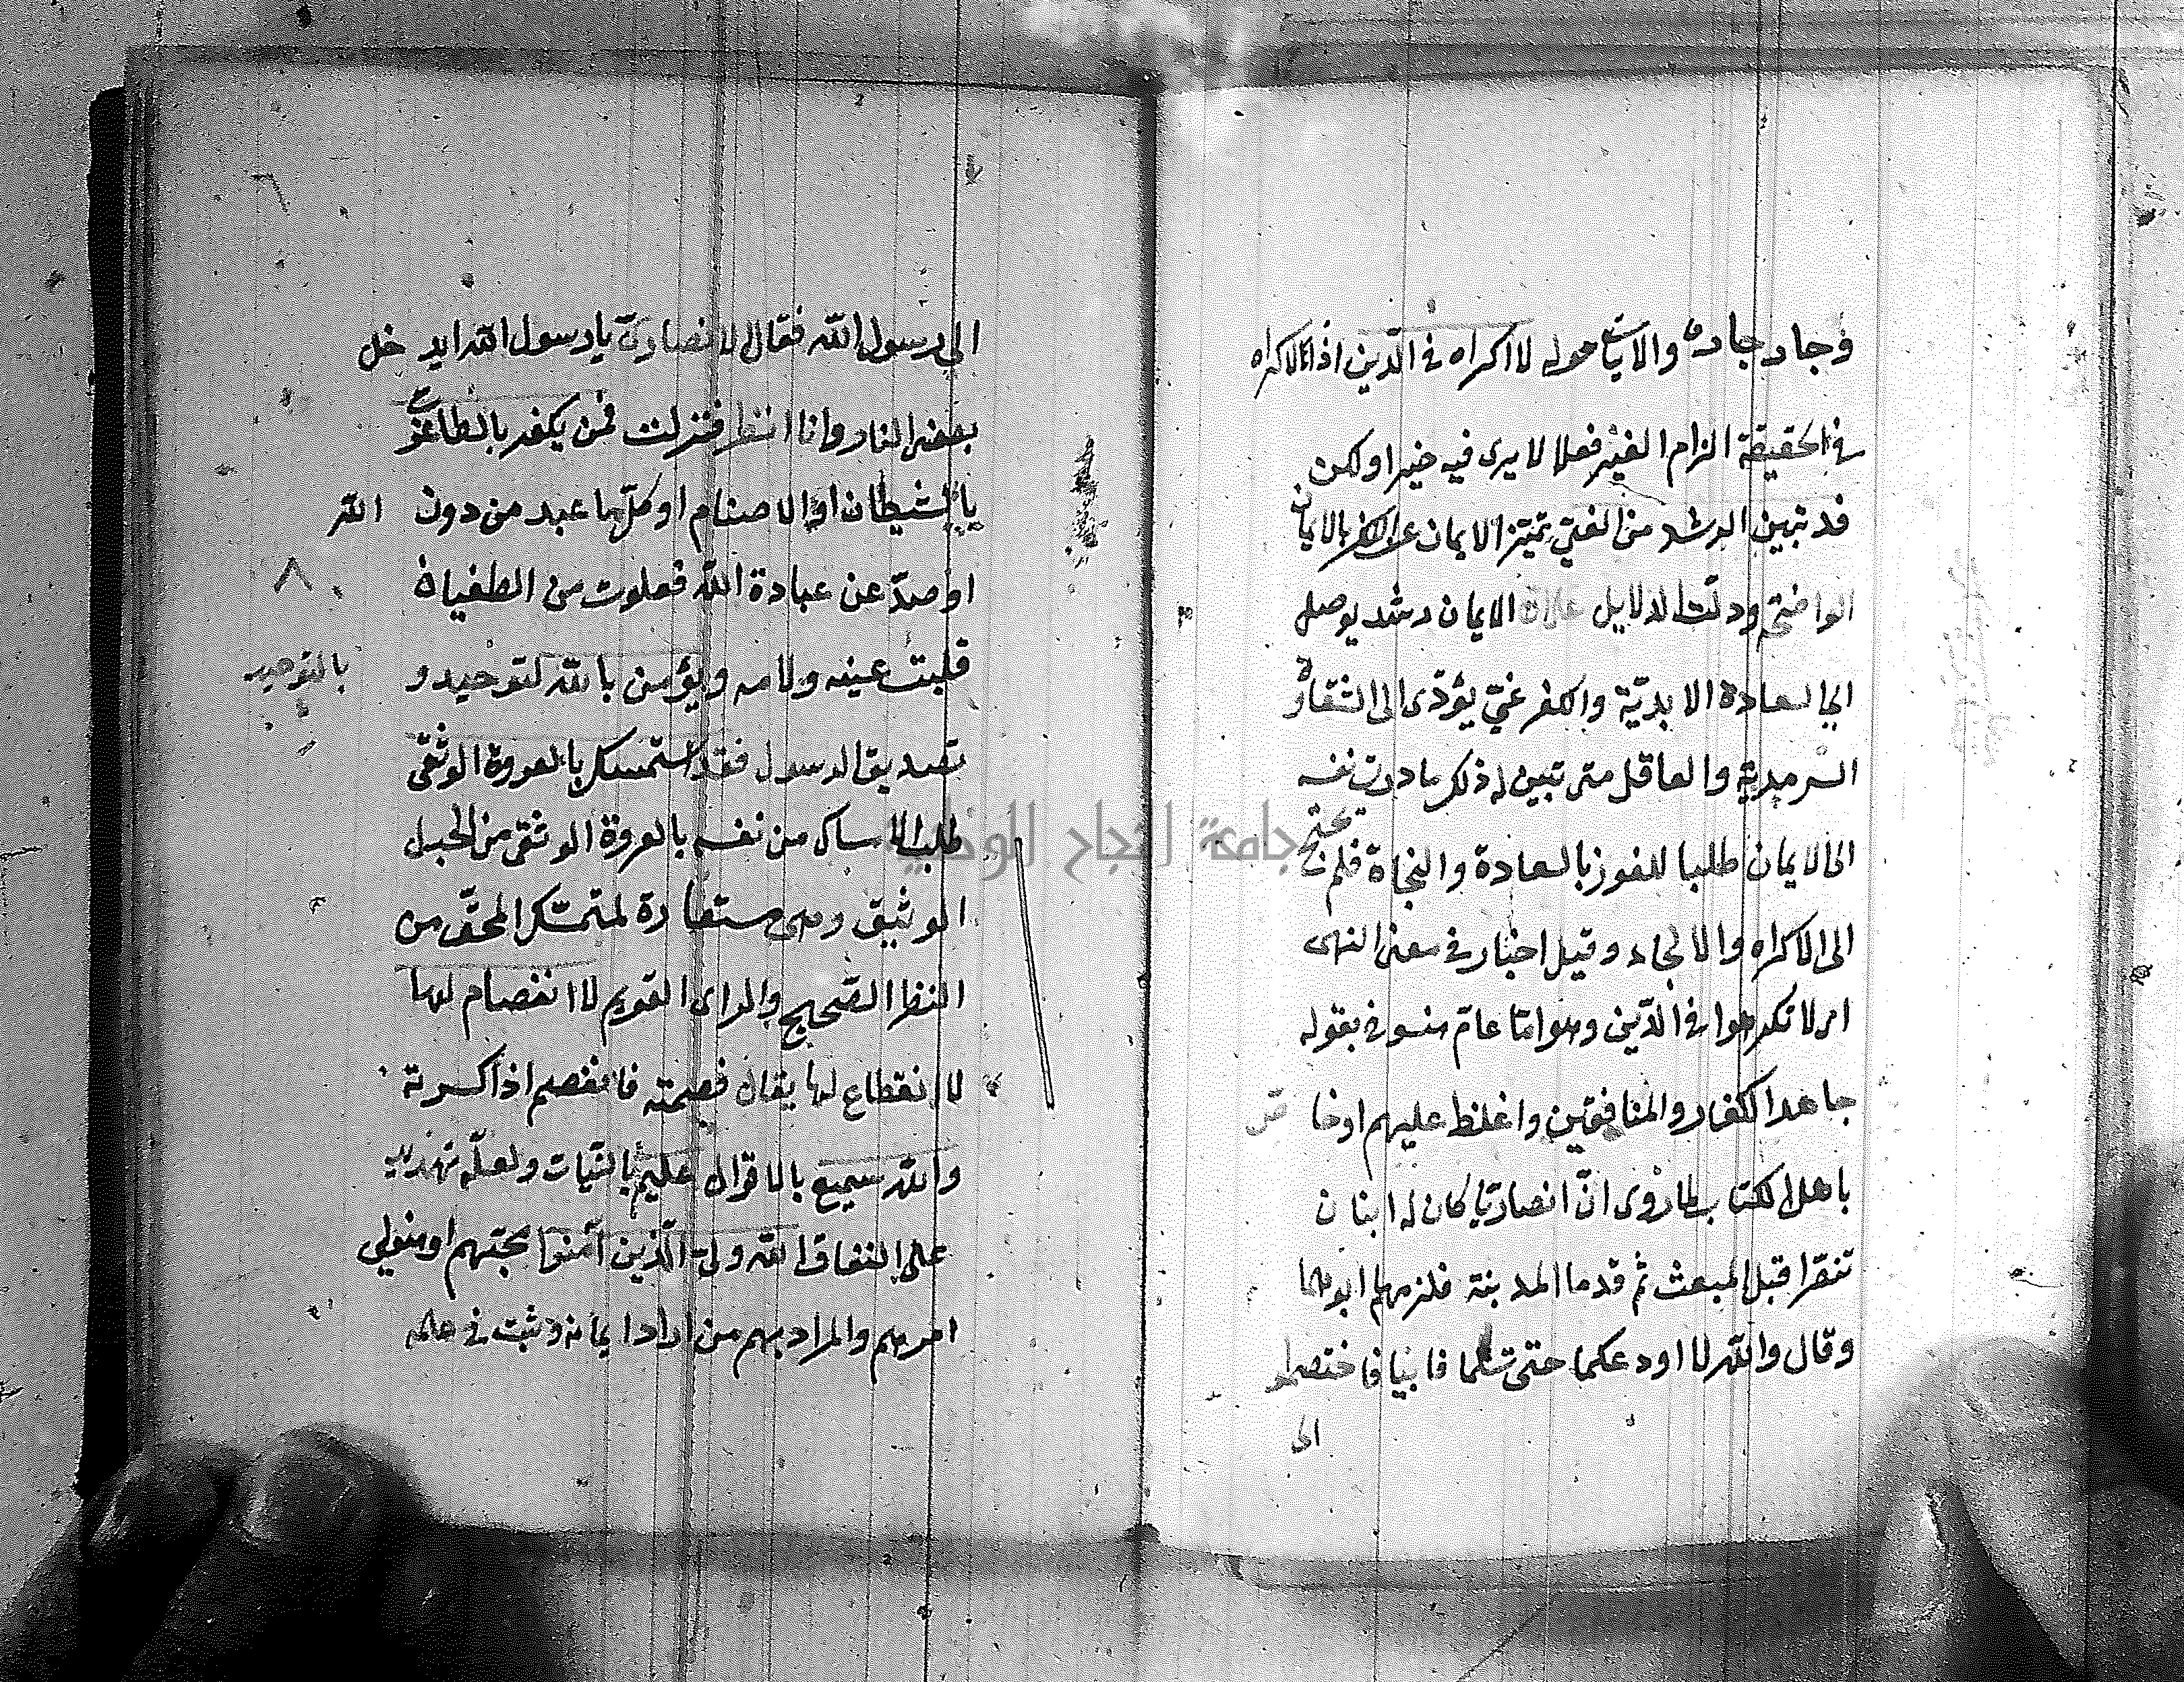 وجار جاره والاتباع حوله لا اكراه في الدين اذ الاكراه
في الحقيقة الزام الغير فعلا لا يرى فيه خيرا ولكن
قد تبين الرشد من الغي تميز الايمان عن الكفر بالايات
الواضحة ودلت الدلايل على ان الايمان رشد يوصل
الى السعادة الابدية والكفر غي يؤدى الى الشقاوة
السرمدية والعاقل متى تبين له ذلك بادرت نفسه
الى الايمان طلبا للفوز بالسعادة والنجاة فلم يحتج
الى الاكراه والالجاء وقيل اخبار في معنى النهى
اى لا تكرهوا في الدين وهو اما عام منسوخ بقوله
جاهد الكفار والمنافقين واغلظ عليهم او خاص
باهل الكتاب لما روى ان انصاريا كان له ابنان
تنصرا قبل المبعث ثم قدما المدينة فلزمهما ابوهما
وقال والله لا اودعكما حتى تسلما فابيا فاختصموا
الى
الى رسول الله فقال الانصارى يا رسول الله ايدخل
بعضى النار وانا انظر فنزلت فمن يكفر بالطاغوت
بالشيطان او الاصنام او كل ما عبد من دون الله
او صد عن عبادة الله فعلوت من الطغيان
قلبت عينه ولامه ويؤمن بالله بالتوحيد و
بالتوحيد
تصديق الرسول فقد استمسك بالعروة الوثقى
طلب الامساك من نفسه بالعروة الوثقى من الحبل
الوثيق وهى مستعارة لمتمسك المحق من
النظر الصحيح والراى القويم لا انفصام لها
لا انقطاع لها يقال فصمته فانفصم اذا كسرته
والله سميع بالاقوال عليم بالنيات ولعله تهديد
على النفاق الله ولى الذين آمنوا محبهم او متولى
امرهم والمراد بهم من اراد ايمانه وثبت في علمه
جامعة النجاح الوطنية